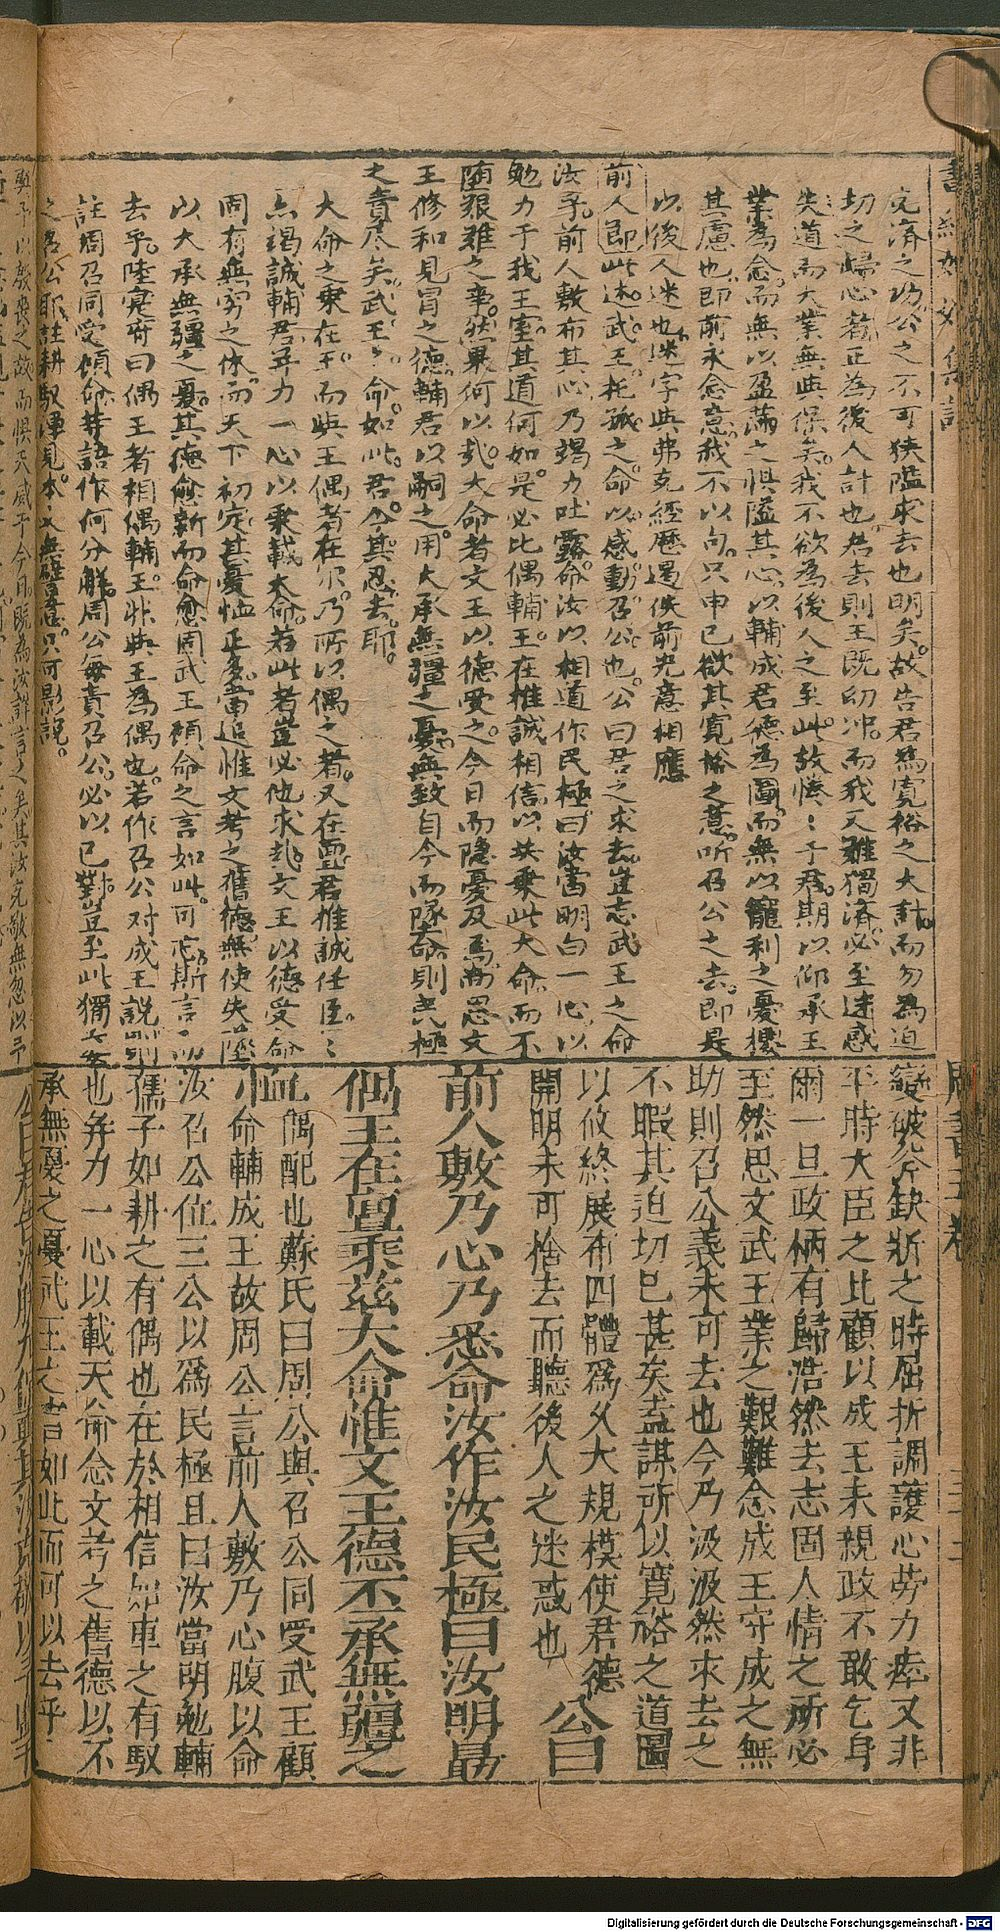 克濟之功公之不可狹隘求去也明矣故告君爲寬裕之大計而勿為迫
切之歸心者正為後人計也君去則王既幼冲而我又難獨濟必至迷惑
失道而大業無與保矣我不欲為後人之至此故惓〻于君期以仰承王
業為念而無以盈滿之惧隘其心以輔成君德為圖而無以寵利之憂攖
其慮也即前永念意我不以句只申已欲其寬裕之意听召公之去即是
以後人迷也迷字與弗克經歷遏佚前光意相應
前人即此述武王托孤之命以感動召公也公曰君之求去豈忘武王之命
汝乎前人敷布其心乃竭力吐露命汝以相道作民極曰汝當明白一心以
勉力于我王室其道何如是必比偶輔王在推誠相信以共乘此大命而不
堕艱難之業然果何以哉大命者文王以德受之今日而隱憂及焉尚思文
王修和見冒之德輔君以嗣之用大承無疆之憂無致自今而墜命則民極
之責尽矣武王之命如此君公其忍去耶
大命之乘在王而與王偶者在尔乃所以偶之者又在亶君推誠任臣〻
亦竭誠輔君并力一心以乘載大命若此者豈必他求哉文王以德受命
周有無穷之休而天下初定其憂恤正多當追惟文考之舊德無使失墜
以大承無疆之憂其德愈新而命愈固武王顧命之言如此可忘斯言而
去乎陸實府曰偶王者相偶輔王非與王為偶也若作召公对成王說則
註周召同受顧命等語作何分解周公每責召公必以已對豈至此獨
變破斧缺斨之時屈折調護心勞力瘁又非
平時大臣之比顧以成王未親政不敢乞身
爾一旦政柄有歸浩然去志固人情之所必
至然思文武王業之艱難念成王守成之無
助則召公義未可去也今乃汲汲然求去之
不暇其迫切已甚矣盍謀所以寬裕之道圖
以攸終展布四體爲久大規模使君德
開明未可捨去而聽後人之迷惑也 公曰
前人敷乃心乃悉命汝作汝民極曰汝明勗
偶王在亶乘茲大命惟文王德丕承無疆之
恤 偶配也蘇氏曰周公與召公同受武王顧
命輔成王故周公言前人敷乃心腹以命
汝召公位三公以爲民極且曰汝當明勉輔
孺子如耕之有偶也在於相信如車之有馭
也并力一心以載天命念文考之舊德以丕
承無疆之憂武王之言如此而可以去乎
Digitalisierung gefördert durch die Deutsche Forschungsgemeinschaft - DFG